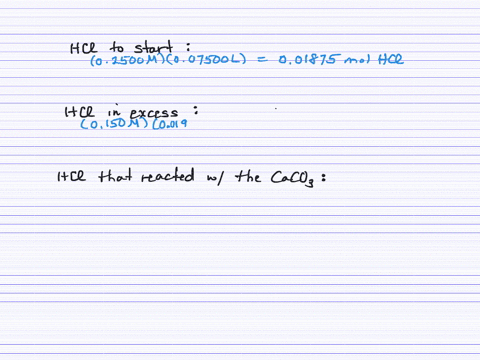 HCl to start :
(0.2500M)(0.07500L) = 0.01875 mol HCl
HCl in excess :
(0.150M)(0.019
HCl that reacted w/ the CaCO₃ :